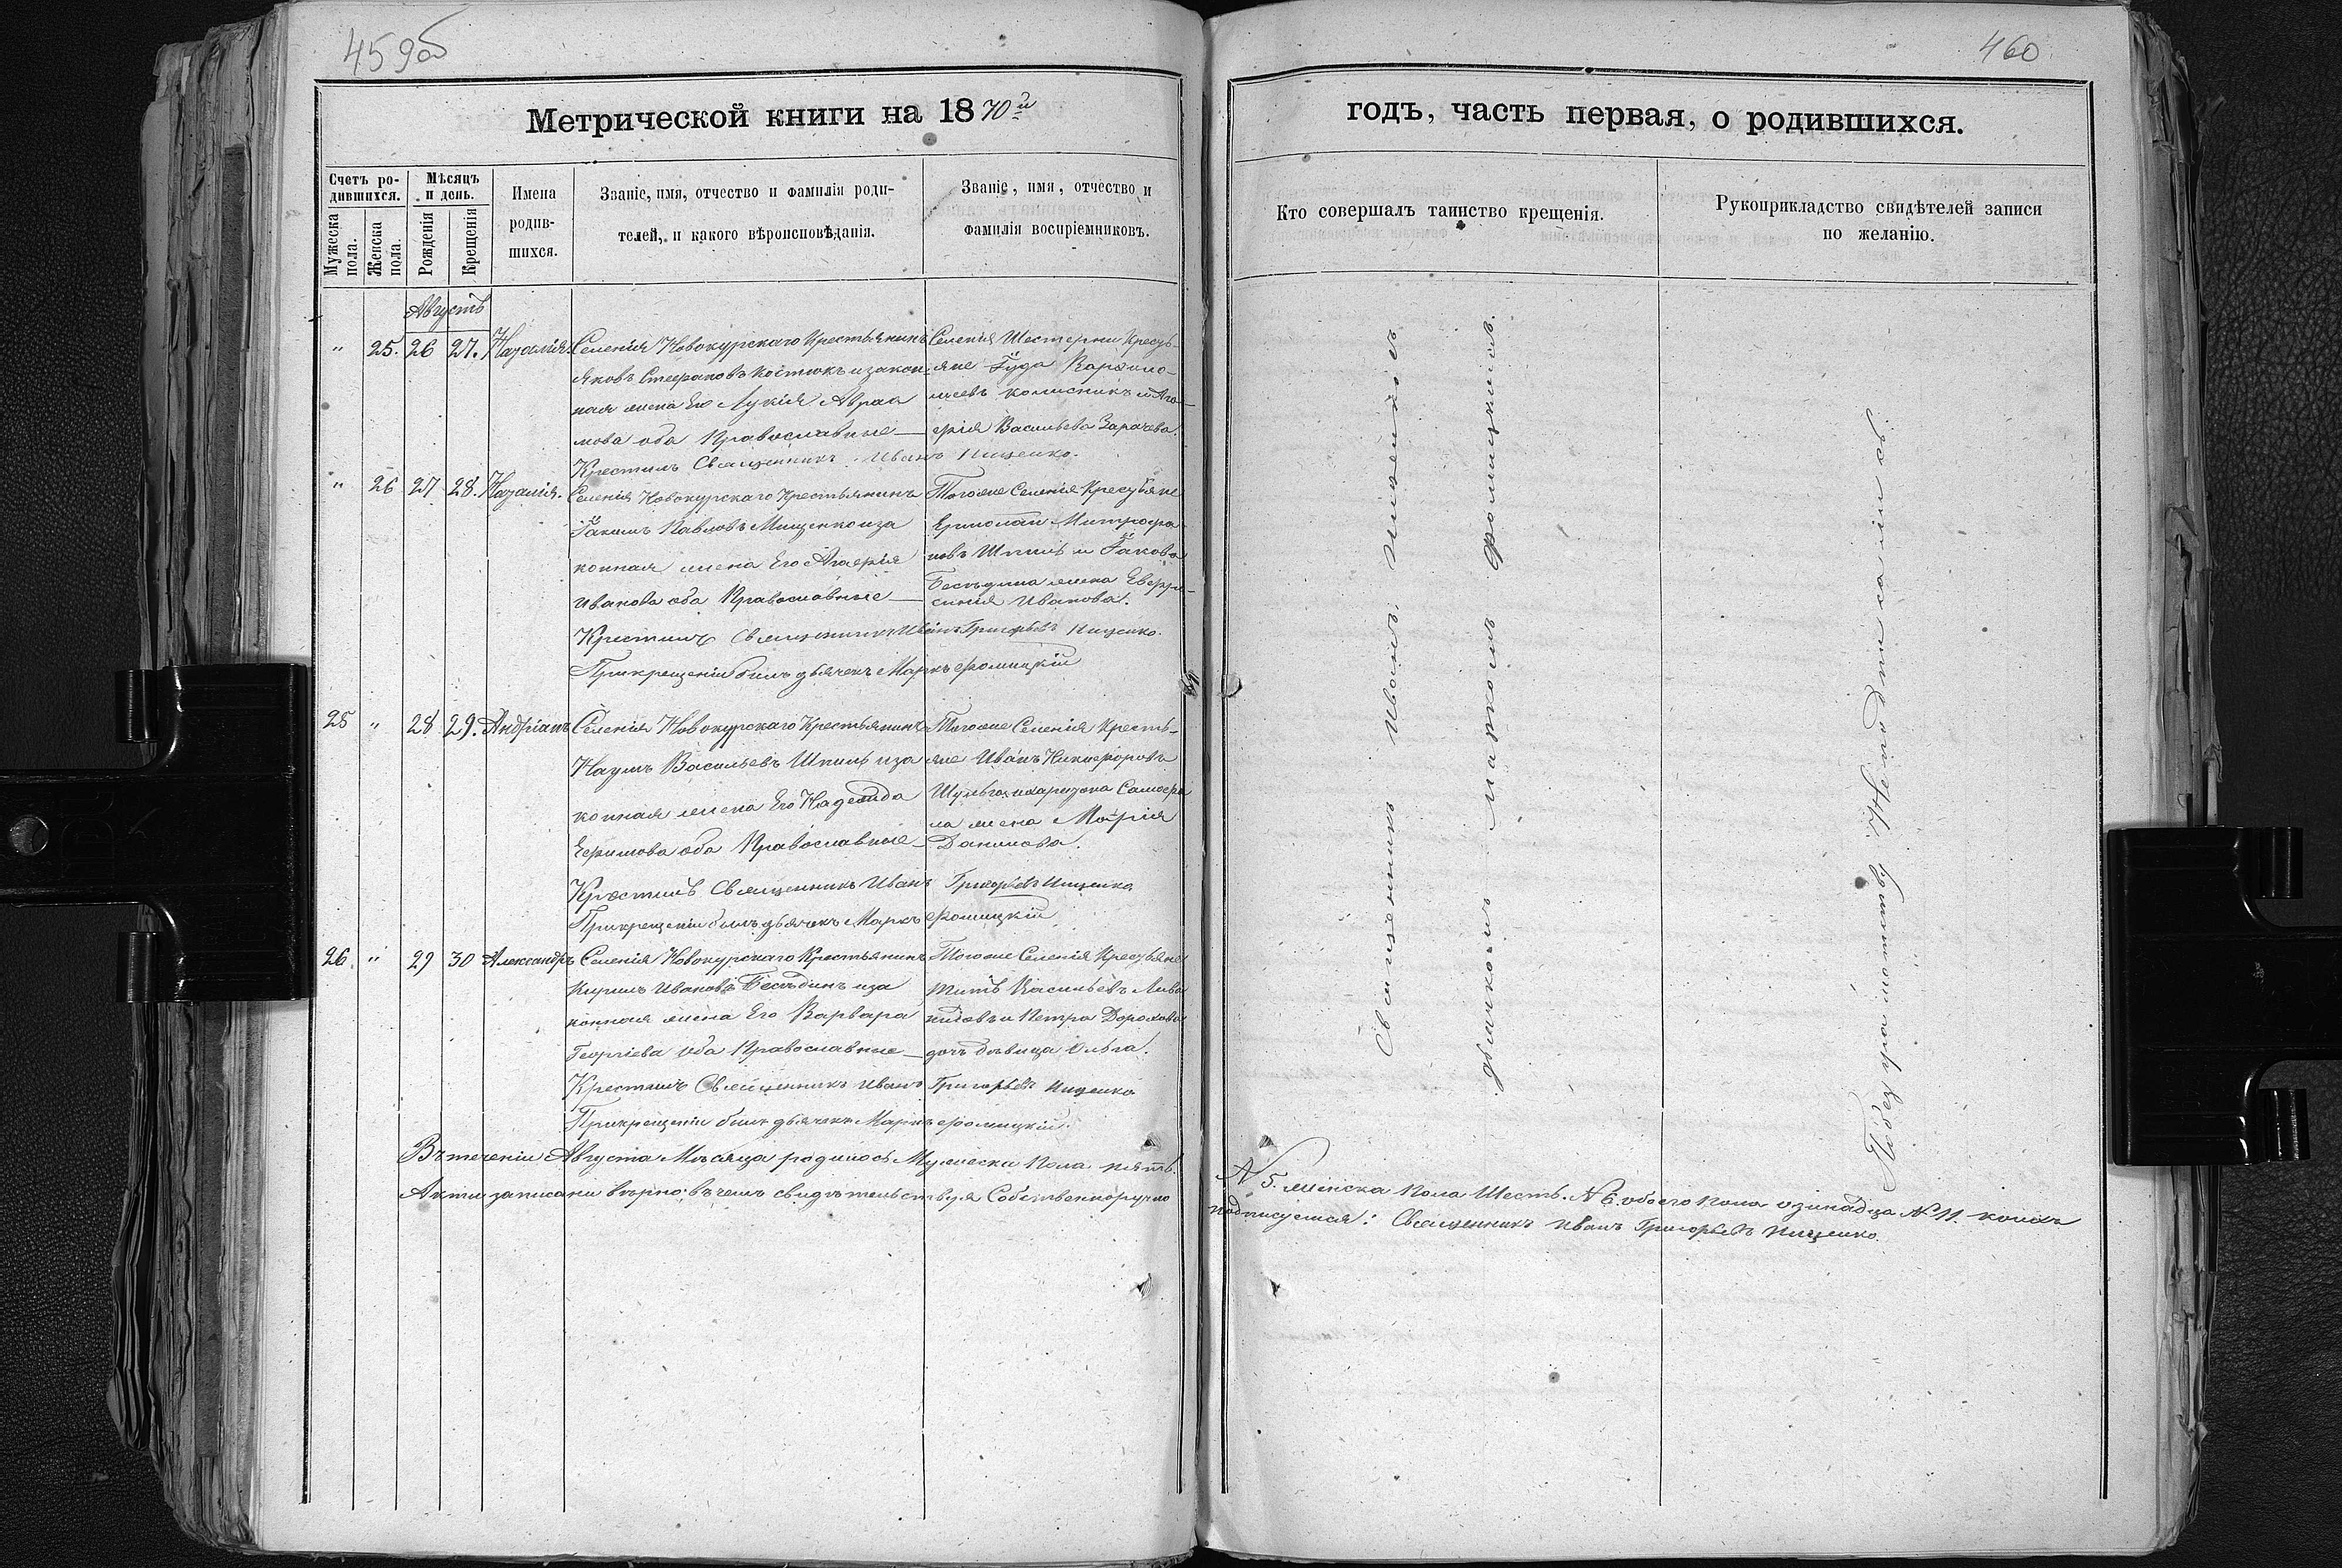 459об
460
Метрической книги на 1870й
годъ, часть первая, о родившихся.
Счетъ ро-
дившихся.
Мужеска пола.
Женска пола.
Мѣсяцъ
и день.
Рожденія
Крещенія
Имена
родив-
шихся.
Званіе, имя, отчество и фамилія роди-
телей, и какого вѣроисповѣданія.
Званіе, имя, отчество и
фамилія воспріемниковъ.
Кто совершалъ таинство крещенія.
Рукоприкладство свидѣтелей записи
по желанію.
Августъ
" 25. 26 27. Наталія.
Селенія Новокурскаго Крестьянинъ
Яковъ Стефановъ Костюкъ и закон-
ная жена Его Лукія Авраа
мова оба Православные
Селенія Шестерни Кресть-
яне Іуда Варѳоло-
меевъ и Ага-
фія Васильева
Крестилъ Священникъ Иванъ Ищенко.
" 26 27 28. Наталія.
Селенія Новокурскаго Крестьянинъ
Іакимъ Павловъ Мищенко и за
конная жена Его Агафія
Иванова оба Православные
Тогоже Селенія Крестьяне
Ермолай Митрофа
новъ Шпиль и Іакова
Бесѣдина жена Евфро-
синія Иванова.
Крестилъ Священникъ Иванъ Григорьевъ Ищенко.
При крещеніи былъ дьячекъ Маркъ Фомицкій
25 " 28 29. Андріанъ
Селенія Новокурскаго Крестьянинъ
Наумъ Васильевъ Шпиль и за
конная жена Его Надежда
Ефимова оба Православные
Тогоже Селенія Кресть-
яне Иванъ Никифоровъ
Шульга
ла жена Марія
Данилова.
Крестилъ Священникъ Иванъ Григорьевъ Ищенко
При крещеніи былъ дьячекъ Маркъ Фомицкій
26. " 29 30 Александръ
Селенія Новокурскаго Крестьянинъ
Кирилъ Ивановъ Бесѣдинъ и за
конная жена Его Варвара
Георгіева оба Православные
Тогоже Селенія Крестьяне
Титъ Васильевъ
и Петра Дорохова
дочь дѣвица Ольга.
Крестилъ Священникъ Иванъ Григорьевъ Ищенко
При крещеніи былъ дьячекъ Маркъ Фомицкій.
Въ теченіи Августа Мѣсяца родилось Мужеска Пола пять.
N 5. Женска Пола Шесть. N 6. обоего Пола N 11.
Акты записани вѣрно: въ чемъ свидѣтельствуя Собственноручно
подписуемся: Священникъ Иванъ Григорьевъ Ищенко.
Священникъ Иванъ Ищенко съ
дьячкомъ Маркомъ Фомицкимъ.
По безграмотству Неподписались